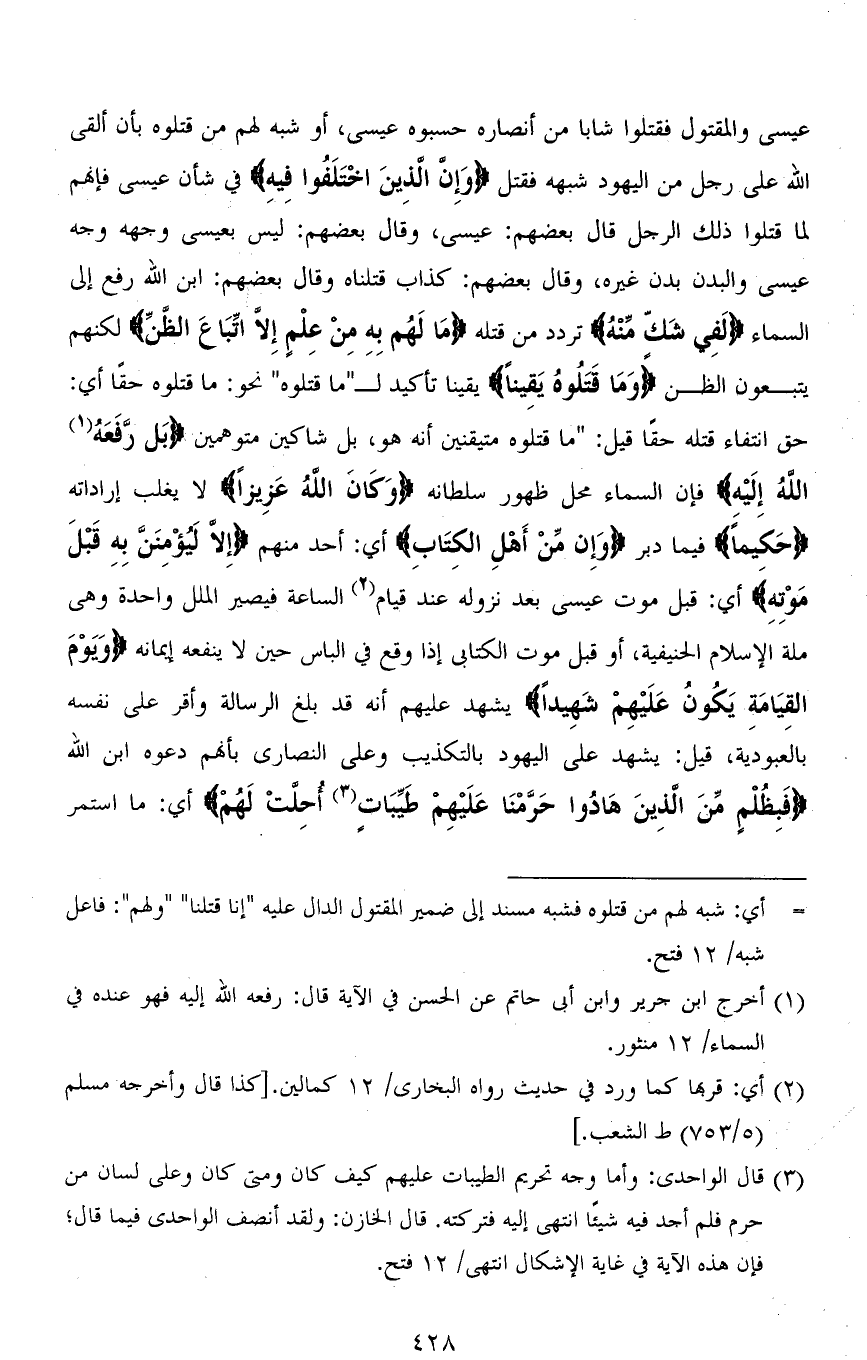 عيسى والمقتول فقتلوا شابا من أنصاره حسبوه عيسى، أو شبه لهم من قتلوه بأن ألقى
الله على رجل من اليهود شبهه فقتل ﴿وَإِنَّ الَّذِينَ اخْتَلَفُوا فِيهِ﴾ في شأن عيسى فإنهم
لما قتلوا ذلك الرجل قال بعضهم: عيسى، وقال بعضهم: ليس بعيسى وجهه وجه
عيسى والبدن بدن غيره، وقال بعضهم: كذاب قتلناه وقال بعضهم: ابن الله رفع إلى
السماء ﴿لَفِي شَكٍّ مِّنْهُ﴾ تردد من قتله ﴿مَا لَهُم بِهِ مِنْ عِلْمٍ إِلاَّ اتِّبَاعَ الظَّنِّ﴾ لكنهم
يتبـــعون الظـــن ﴿وَمَا قَتَلُوهُ يَقِيناً﴾ يقينا تأكيد لــ"ما قتلوه" نحو: ما قتلوه حقًا أي:
حق انتفاء قتله حقًا قيل: "ما قتلوه متيقنين أنه هو، بل شاكين متوهمين ﴿بَل رَّفَعَهُ(١)
اللَّهُ إِلَيْهِ﴾ فإن السماء محل ظهور سلطانه ﴿وَكَانَ اللَّهُ عَزِيزاً﴾ لا يغلب إراداته
﴿حَكِيماً﴾ فيما دبر ﴿وَإِن مِّنْ أَهْلِ الكِتَابِ﴾ أي: أحد منهم ﴿إِلاَّ لَيُؤْمِنَنَّ بِهِ قَبْلَ
مَوْتِهِ﴾ أي: قبل موت عيسى بعد نزوله عند قيام(٢) الساعة فيصير الملل واحدة وهى
ملة الإسلام الحنيفية، أو قبل موت الكتابى إذا وقع في الباس حين لا ينفعه إيمانه ﴿وَيَوْمَ
القِيَامَةِ يَكُونُ عَلَيْهِمْ شَهِيداً﴾ يشهد عليهم أنه قد بلغ الرسالة وأقر على نفسه
بالعبودية، قيل: يشهد على اليهود بالتكذيب وعلى النصارى بأنهم دعوه ابن الله
﴿فَبِظُلْمٍ مِّنَ الَّذِينَ هَادُوا حَرَّمْنَا عَلَيْهِمْ طَيِّبَاتٍ(٣) أُحِلَّتْ لَهُمْ﴾ أي: ما استمر
= أي: شبه لهم من قتلوه فشبه مسند إلى ضمير المقتول الدال عليه "إنا قتلنا" "ولهم": فاعل
شبه/ ١٢ فتح.
(١) أخرج ابن جرير وابن أبى حاتم عن الحسن في الآية قال: رفعه الله إليه فهو عنده في
السماء/ ١٢ منثور.
(٢) أي: قربها كما ورد في حديث رواه البخارى/ ١٢ كمالين.[كذا قال وأخرجه مسلم
(٧٥٣/٥) ط الشعب.]
(٣) قال الواحدى: وأما وجه تحريم الطيبات عليهم كيف كان ومتى كان وعلى لسان من
حرم فلم أجد فيه شيئًا انتهى إليه فتركته. قال الخازن: ولقد أنصف الواحدى فيما قال؛
فإن هذه الآية في غاية الإشكال انتهى/ ١٢ فتح.
٤٢٨